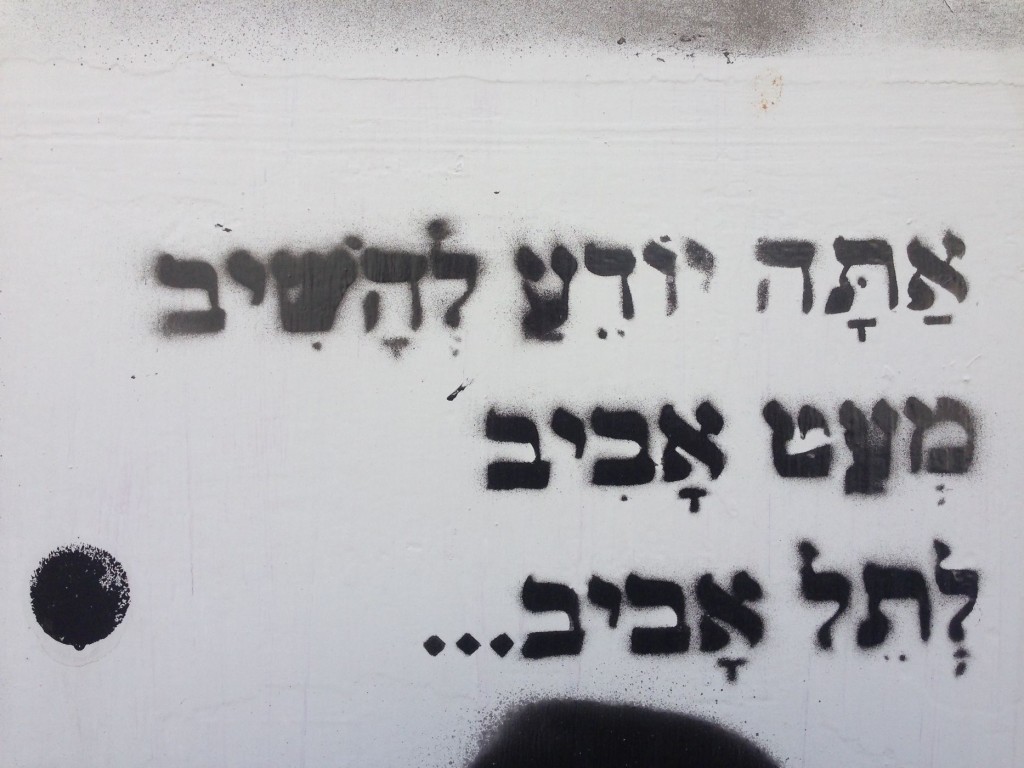 אַתָּה יוֹדֵעַ לְהָשִׁיב
מְעַט אָבִיב
לְתֵל אָבִיב...